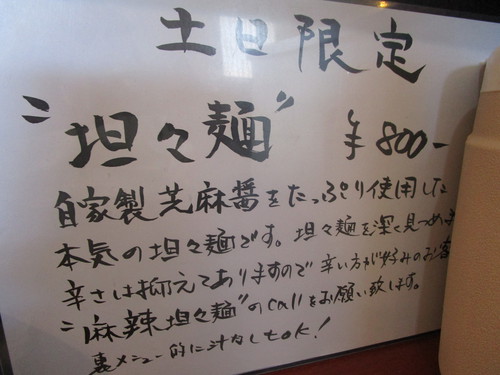 土日限定
"担々麺" ¥800-
自家製芝麻醤をたっぷり使用した
本気の担々麺です。担々麺を深く見つめ
辛さは抑えてありますので辛い方が好みのお客
"麻辣担々麺"のcallをお願い致します。
裏メニュー的に汁なしもOK!